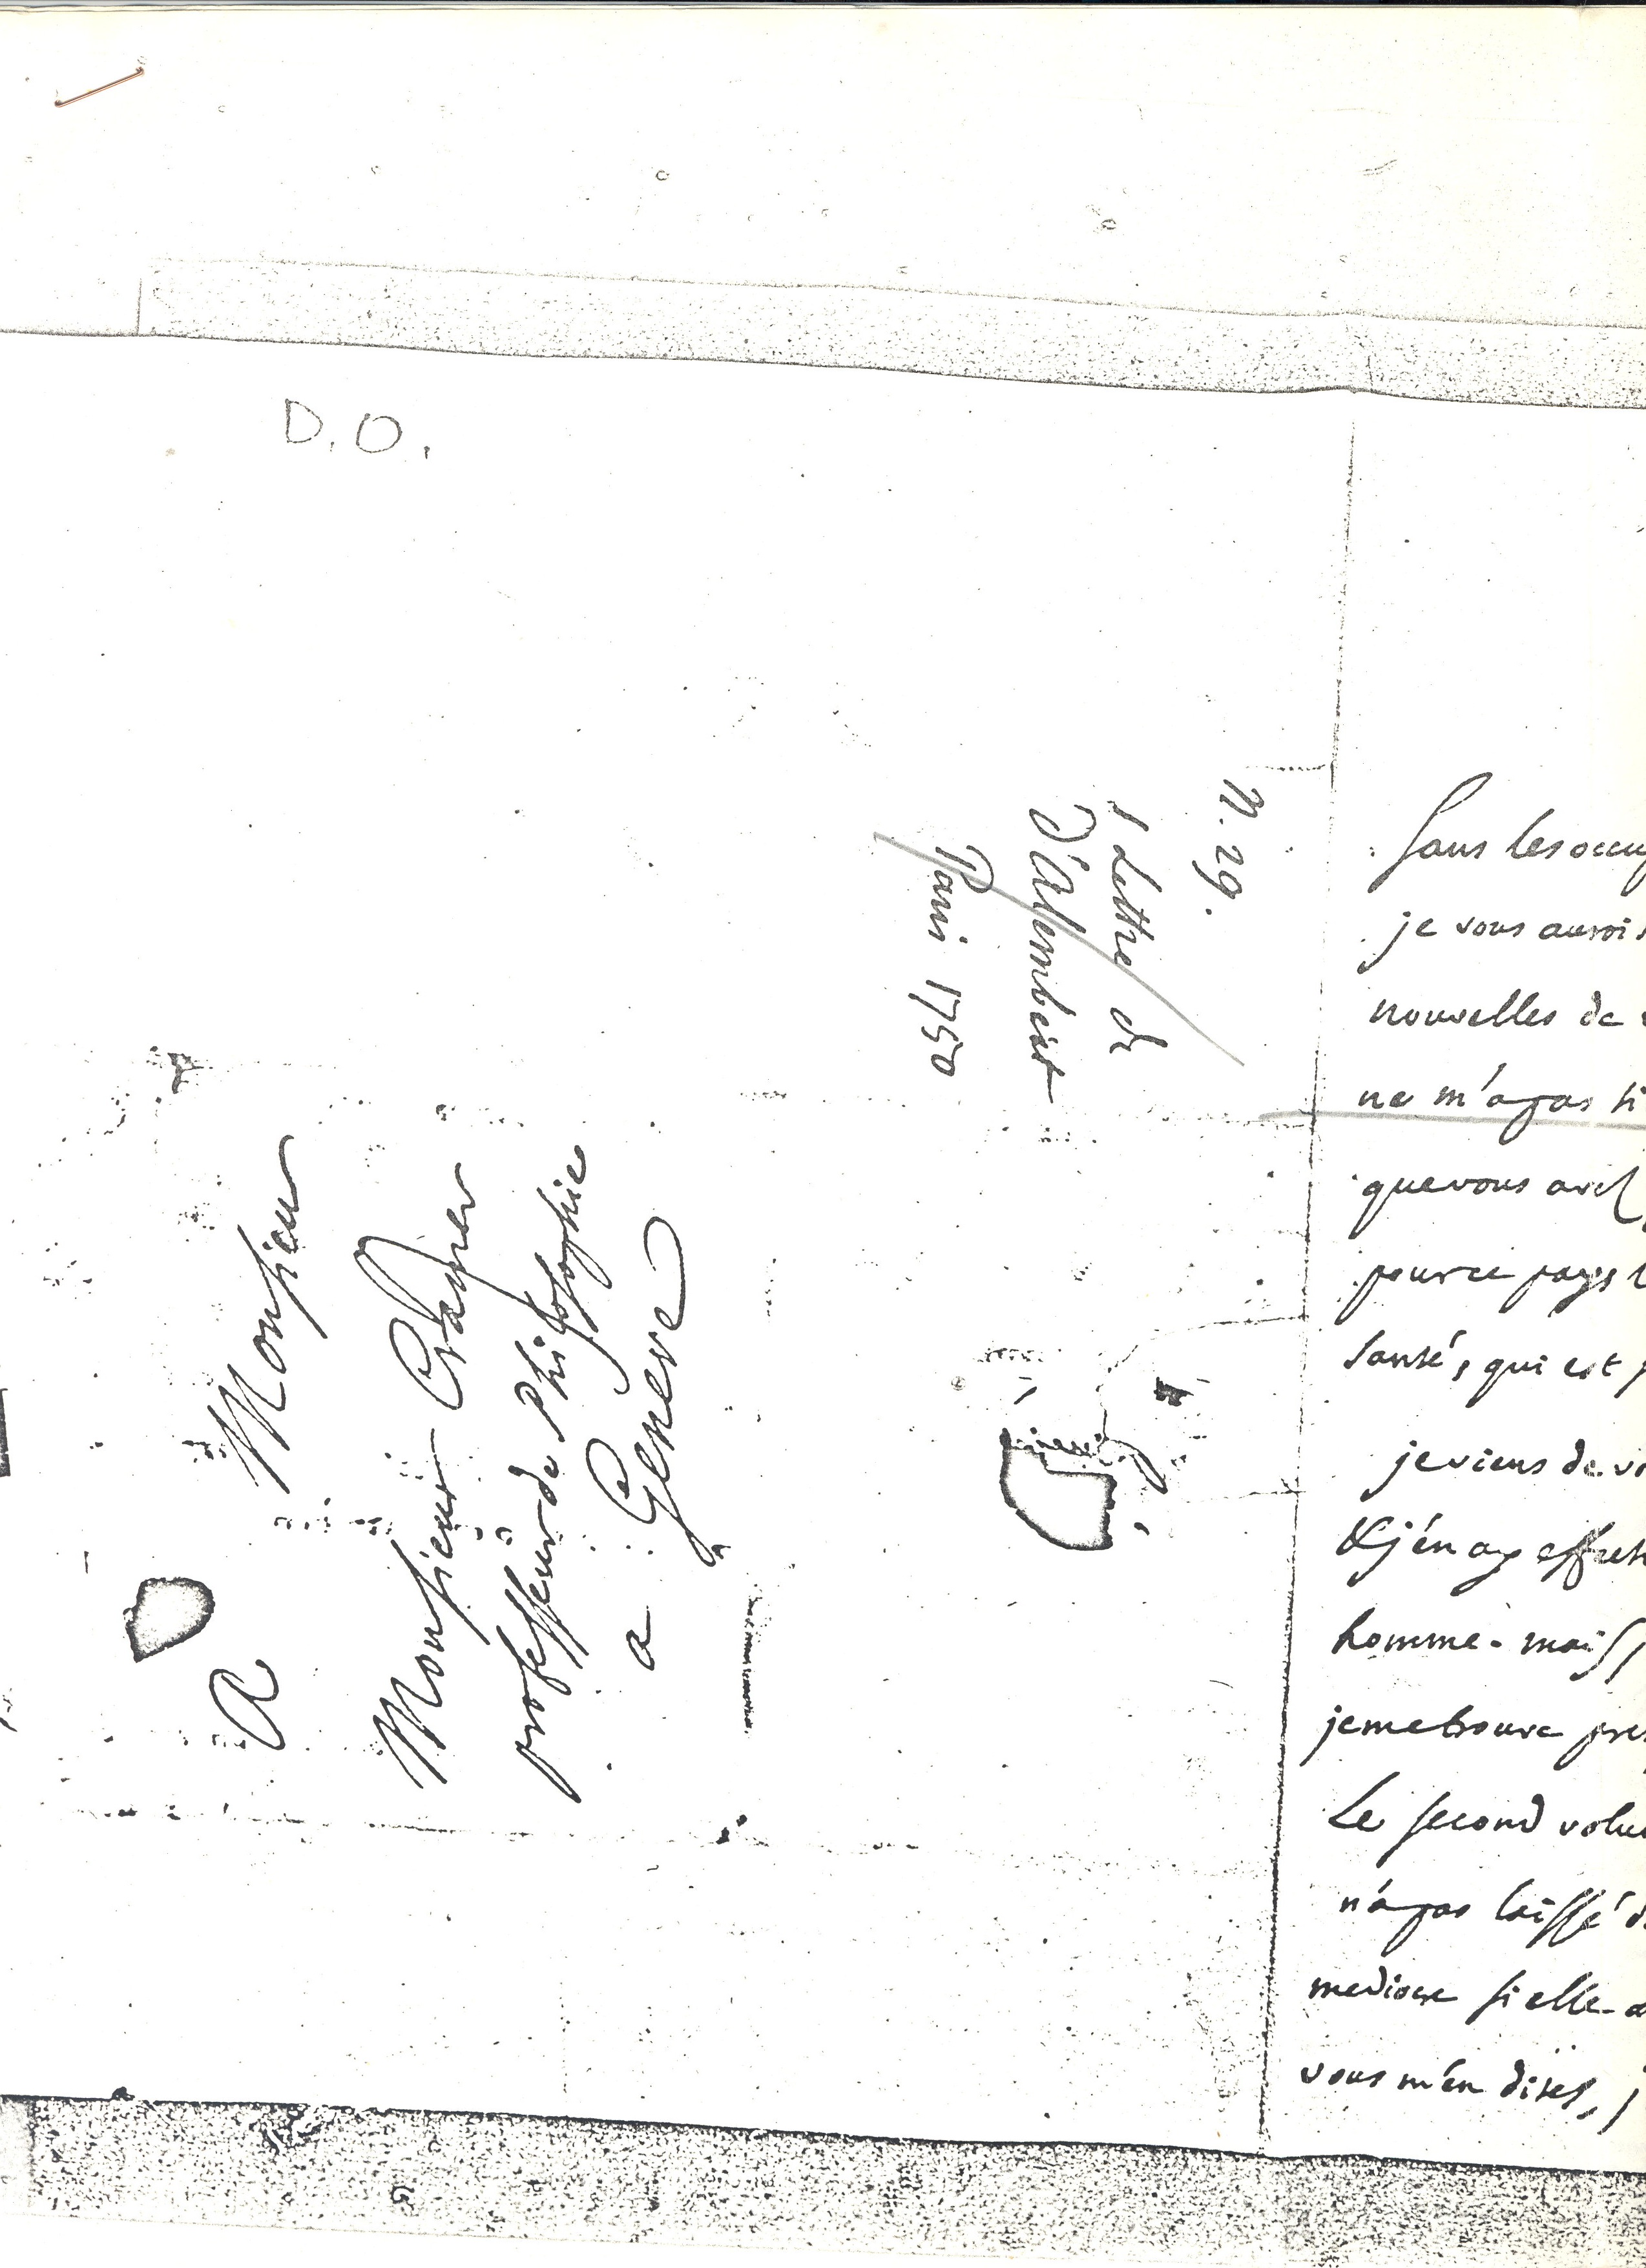 D.O.
n. 29.
1 Lettre de
D'Alembert
Paris 1750
A Monsieur
Monsieur Cramer
professeur de Philosophie
a Geneve
Sans les occup
je vous aurois
nouvelles de
ne m'a pas si
que vous avez
pour ce pays
santé, qui est
je viens de
& j'en ay effecti
homme. mais
je me trouve pres
Le second volu
n'a pas laissé d
mediocre si elle
vous m'en dites,